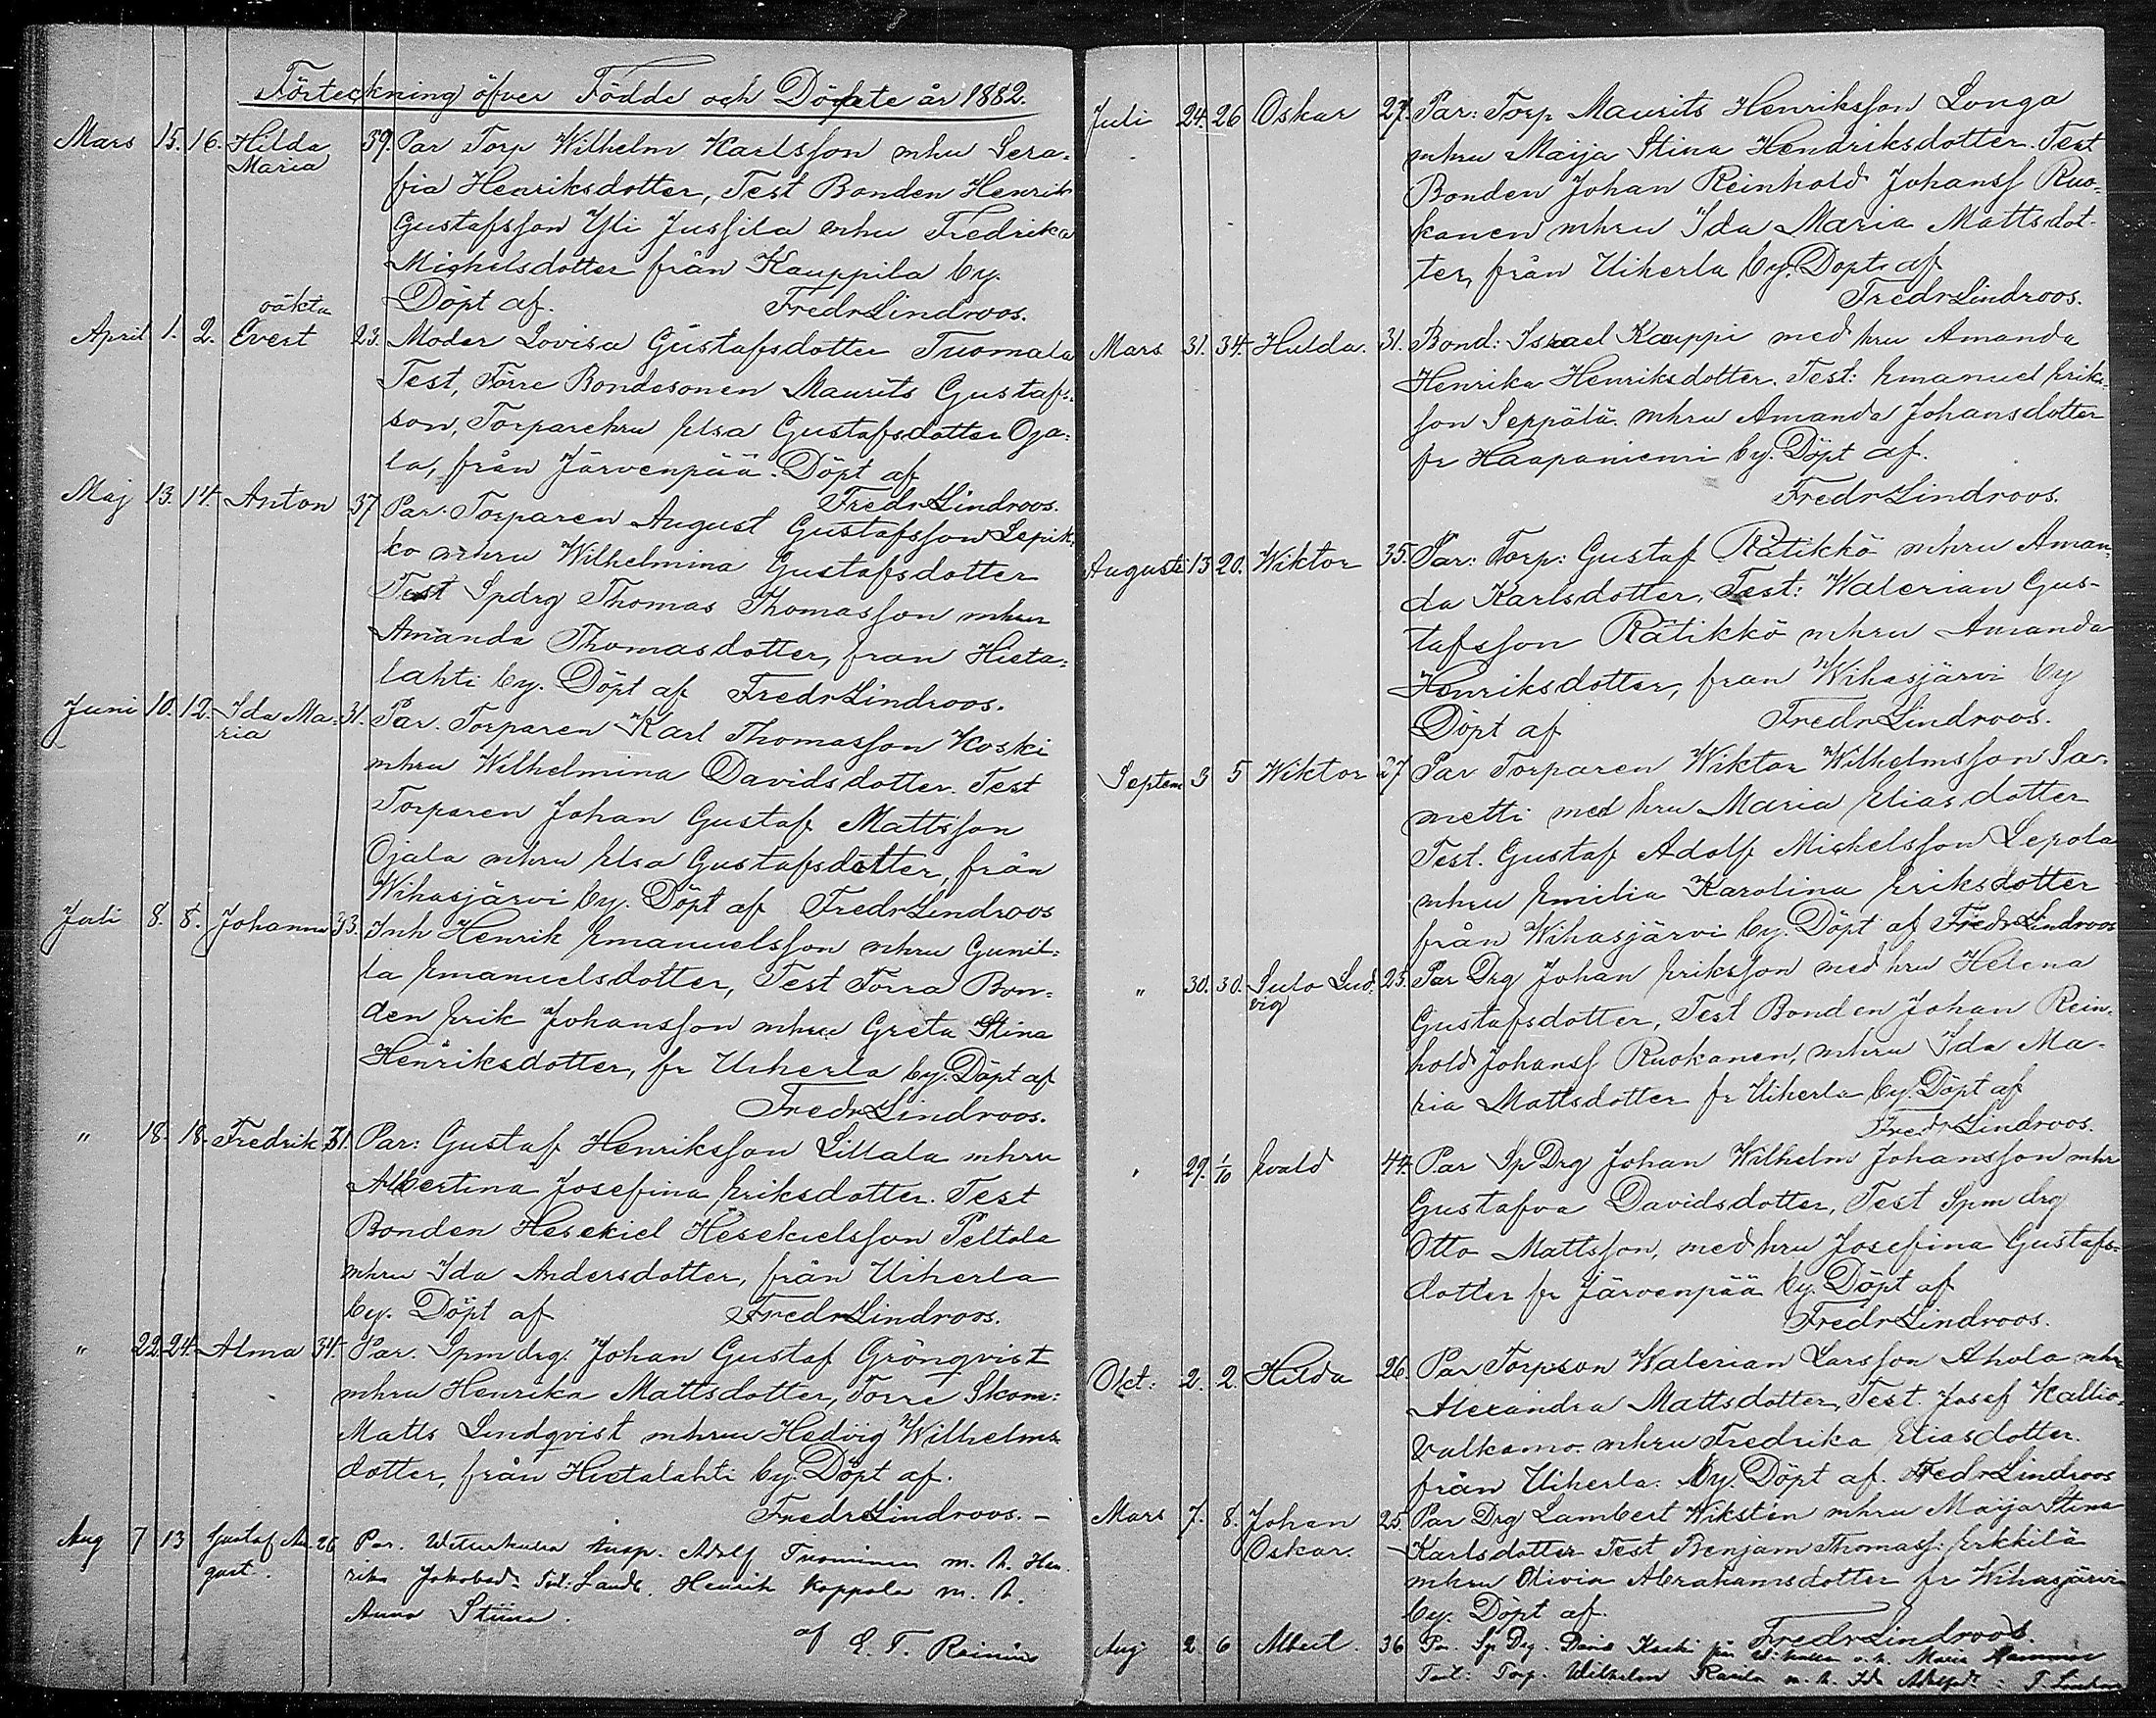 Förteckning öfver Födde och Döpte år 1882.
Mars 15. 16. Hilda Maria 39. Par Torp Wilhelm Karlsson mhru Sera-
fia Henriksdotter, Test Bonden Henrik
Gustafsson Yli Jussila mhru Fredrika
Michelsdotter från Kauppila by.
Döpt af. Fredr Lindroos.
April 1. 2. oäkta Evert 23. Moder Lovisa Gustafsdotter Tuomala
Test, Förre Bondesonen Maurits Gustafs-
son, Torparehru Elsa Gustafsdotter Oja-
la, från Järvenpää. Döpt af
Fredr Lindroos.
Maj 13. 14. Anton 37 Par. Torparen August Gustafsson Lepik-
ko mhru Wilhelmina Gustafsdotter
Test Spdrg Thomas Thomasson mhru
Amanda Thomasdotter, fran Hieta-
lahti by. Döpt af Fredr Lindroos.
Juni 10. 12. Ida Ma-ria 31. Par. Torparen Karl Thomasson Koski
mhru Wilhelmina Davidsdotter. Test
Torparen Johan Gustaf Mattsson
Ojala mhru Elsa Gustafsdotter, från
Wihasjärvi by. Döpt af Fredr Lindroos
Juli 8. 8. Johanna 33. Inh Henrik Emanuelsson mhru Gunil-
la Emanuelsdotter, Test Förra Bon-
den Erik Johansson mhru Greta Stina
Henriksdotter, fr Uiherla by. Döpt af
Fredr Lindroos.
" 18. 18. Fredrik 31. Par: Gustaf Henriksson Sillala mhru
Albertina Josefina Eriksdotter. Test
Bonden Hesekiel Hesekielsson Peltola
mhru Ida Andersdotter, från Uiherla
by. Döpt af Fredr Lindroos.
" 22. 24. Alma 34. Par. Spmdrg. Johan Gustaf Grönqvist
mhru Henrika Mattsdotter, Förre Skom:
Matts Lindqvist mhru Hedvig Wilhelms-
dotter, från Hietalahti by. Döpt af.
Fredr Lindroos. –
Aug 7 13 Gustaf Au-gust. 26 Par. Adolf Tuominen m. h. Hen
rika Jakobsd. Test: Landb. Henrik Koppala m. h.
Anna Stiina.
af E. F. Roinius
Juli 24. 26 Oskar 27. Par: Torp Maurits Henriksson Longa
mhru Maija Stina Hendriksdotter. Test
Bonden Johan Reinhold Johanss Ruo-
kanen mhru Ida Maria Mattsdot-
ter, från Uiherla by. Döpt af
Fredr Lindroos.
Mars 31. 34. Hulda. 31. Bond: Israel Kauppi med hru Amanda
Henrika Henriksdotter. Test: Emanuel Eriks-
son Seppälä mhru Amanda Johansdotter
fr Haapaniemi by. Döpt af.
Fredr Lindroos.
Augusti 13 20. Wiktor 35. Par: Torp: Gustaf Rätikkö mhru Aman-
da Karlsdotter, Test: Walerian Gus-
tafsson Rätikkö mhru Amanda
Henriksdotter, fran Wihasjärvi by
Döpt af Fredr Lindroos.
Septem 3 5 Wiktor 27 Par Torparen Wiktor Wilhelmsson Sa-
metti med hru Maria Eliasdotter
Test. Gustaf Adolf Michelsson Lepola
mhru Emilia Karolina Eriksdotter
från Wihasjärvi by. Döpt af Fredr Lindroos
" 30. 30. Sulo Lud-vig 25. Par Drg Johan Eriksson med hru Helena
Gustafsdotter, Test Bonden Johan Rein-
hold Johanss Ruokanen, mhru Ida Ma-
ria Mattsdotter fr Uiherla by. Döpt af
Fredr Lindroos.
" 29. 1/10 Evald 44. Par Sp Drg Johan Wilhelm Johansson mhr
Gustafva Davidsdotter, Test Spm drg
Otto Mattsson, med hru Josefina Gustafs-
dotter fr Järvenpää by. Döpt af
Fredr Lindroos.
Okt: 2. 2. Hilda 26. Par Torpson Walerian Larsson Ahola mhr
Alexandra Mattsdotter, Test. Josef Kallio-
valkama mhru Fredrika Eliasdotter.
från Uiherla. by. Döpt af. Fredr Lindroos
Mars 7. 8. Johan Oskar. 25. Par Drg Lambert Wikstén mhru Maija Stina
Karlsdotter Test Benjam Thomass: Erkkilä
mhru Olivia Abrahamsdotter fr Wihasjärvi
by. Döpt af.
Fredr Lindroos.
Aug 2 6 Albert. 36 Par. Sp Drg. David Koski m. h. Maria
Test: Torp. Wilhelm Rasila m. h. Ida